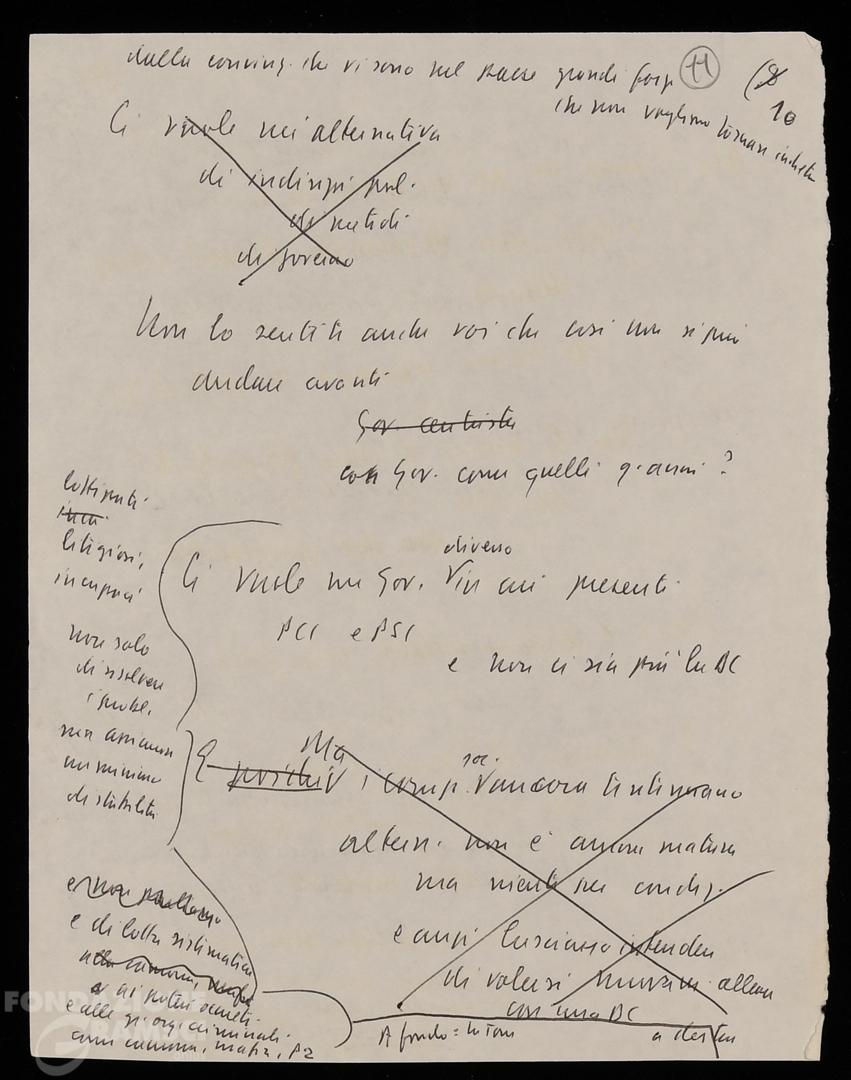 dalla convinz. che vi sono nel paese grandi forze
11
(8
10
che non vogliono tornare indietro
Ci vuole un'alternativa
di indirizzi pol.
di metodi
di governo
Non lo sentite anche voi che così non si può
andare avanti
Gov. centriste
con Gov. come quelli q. anni?
litigiosi,
incapaci
non solo
di risolvere
i probl.
ma assicurare
un minimo
di stabilità
diverso
Ci vuole un Gov. V in cui presenti
PCI e PSI
e non ci sia più la DC
Ma
soc.
E poiché V i comp. V ancora
altern. non è ancora matura
ma niente per condiz.
e anzi lasciano intendere
di volersi allear
con una DC
e di lotta sistematica
alla camorra, mafia
ai poteri secreti
e alle org. criminali
come camorra, mafia, P2
A fondo =
a destra
FONDAZIONE
GRAMSCI